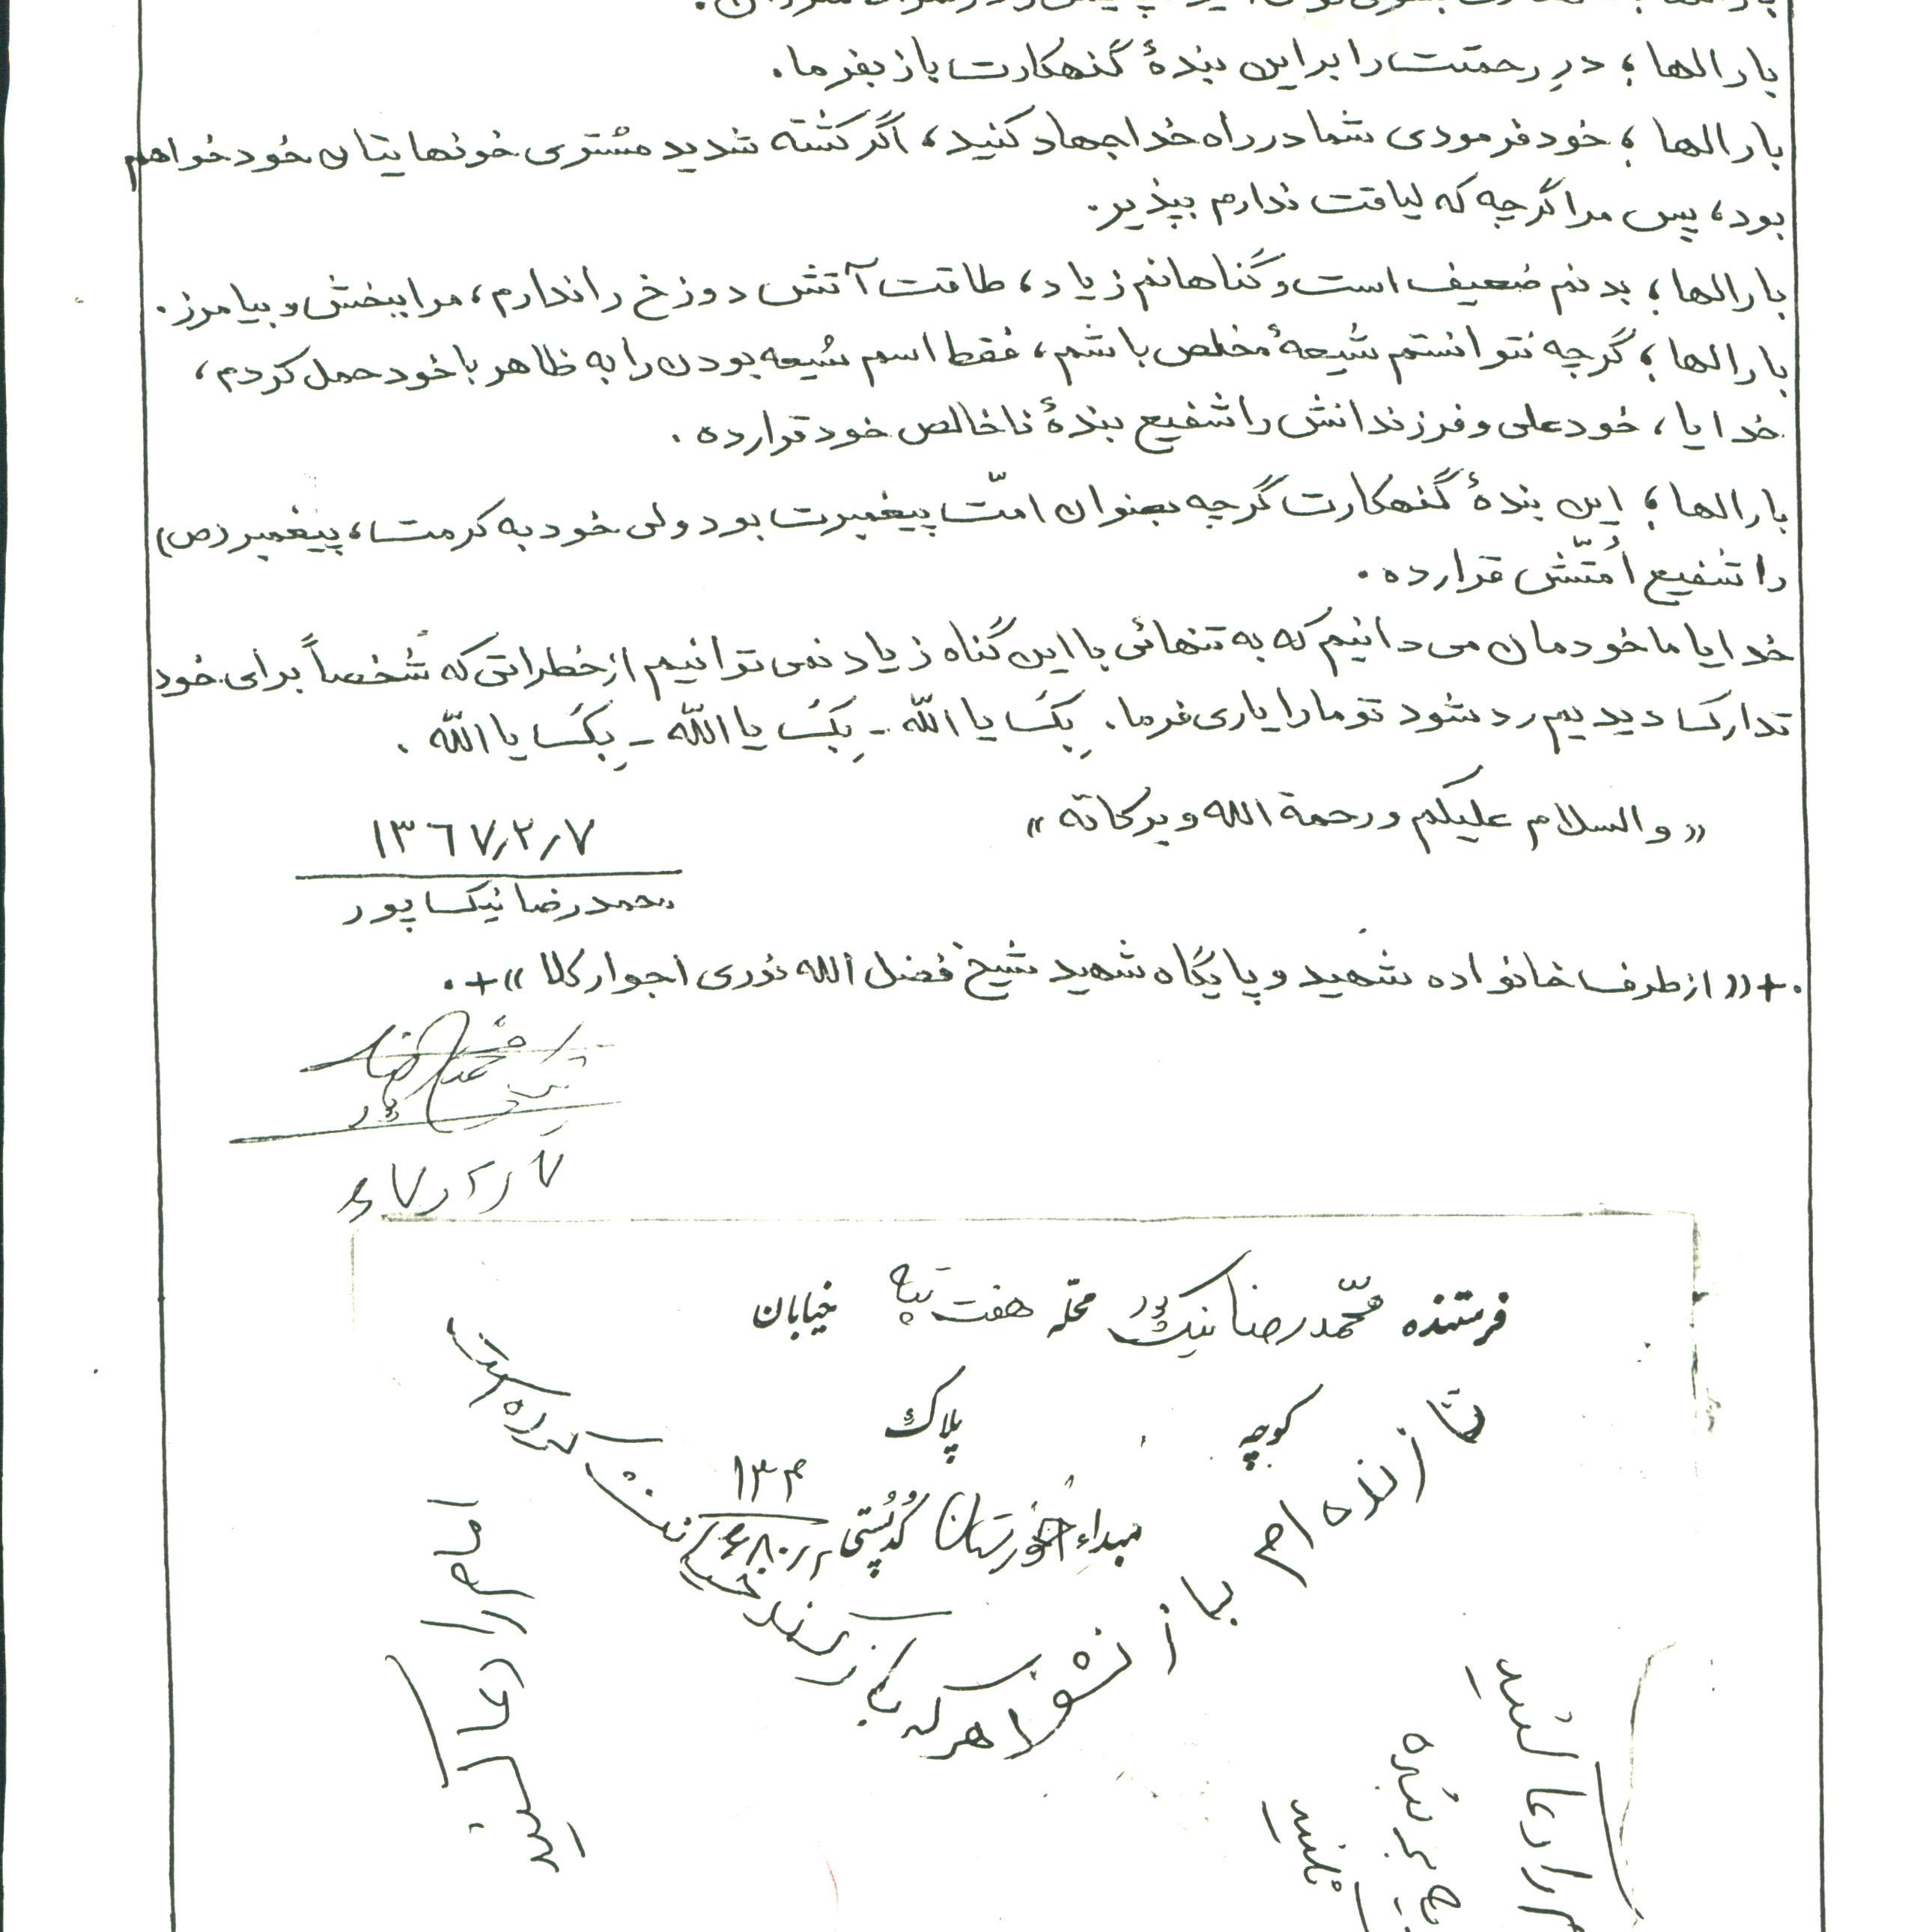 بارالها؛ درِ رحمتت را بر این بندهٔ گنهکارت باز بفرما.
بارالها؛ خود فرمودی شما در راه خدا جهاد کنید، اگر کشته شدید مشتری خونهایتان خود خواهم
بود، پس مرا گرچه که لیاقت ندارم بپذیر.
بارالها؛ بدنم ضعیف است و گناهانم زیاد، طاقت آتش دوزخ را ندارم، مرا ببخش و بیامرز.
بارالها؛ گرچه نتوانستم شیعهٔ مخلص باشم، فقط اسم شیعه بودن را به ظاهر با خود حمل کردم،
خدایا، خود علی و فرزندانش را شفیع بندهٔ ناخالص خود قرارده.
بارالها؛ این بندهٔ گنهکارت گرچه بعنوان امّت پیغمبرت بود ولی خود به کرمت، پیغمبر (ص)
را شفیع اُمتّش قرارده.
خدایا ما خودمان می دانیم که به تنهائی با این گناه زیاد نمی توانیم از خطراتی که شخصاً برای خود
تدارک دیدیم رد شود تو ما را یاری فرما. بِکَ یا اللّه - بِکَ یا اللّه - بِکَ یا اللّه.
«والسلام علیکم و رحمة الله و برکاته»
۱۳۶۷٫۲٫۷
محمدرضا نیک پور
.+ «از طرف خانواده شهید و پایگاه شهید شیخ فضل الله نوری اجوارکلا» +.
محمدرضا
نیک پور
۶۷٫۲٫۷
فرستنده محمّدرضا نیک پور محله هفت تپه خیابان
کوچه پلاک
مبداء خوزستان کُدپُستی
۱۳۴
تا زنده ام